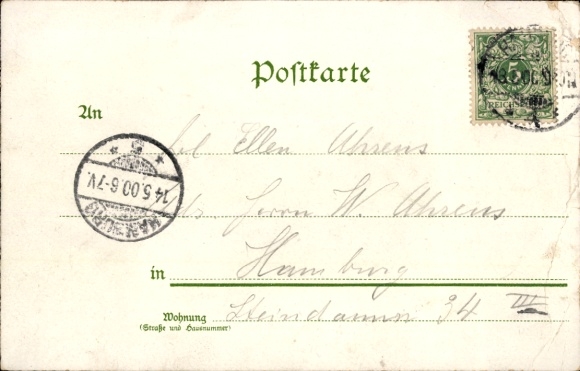 Postkarte
5
REICHSPOST
An
Frl Ellen Ahrens
HAMBURG
14.5.00.6-7V.
Herrn W. Ahrens
in Hamburg
Wohnung Steindamm 34 III
(Straße und Hausnummer)